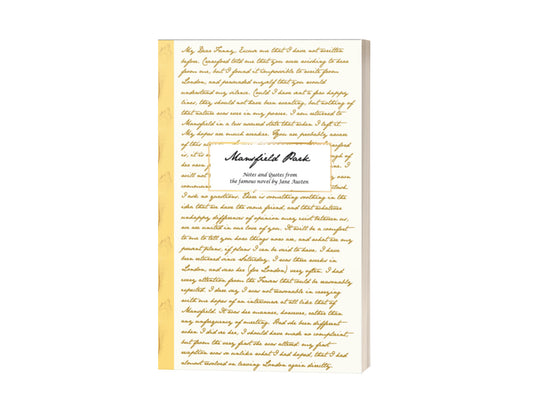 My Dear Fanny, Excuse me that I have not written
before. Crawford told me that you were wishing to hear
from me, but I found it impossible to write from
London, and persuaded myself that you would
understand my silence. Could I have sent a few happy
lines, they should not have been wanting, but nothing of
that nature was ever in my power. I am returned to
Mansfield in a less assured state than when I left it.
My hopes are much weaker. You are probably aware
of this
is, it is
of
her own
I
will not
own
Mansfield Park
Notes and Quotes from
the famous novel by Jane Austen
I ask no questions. There is something soothing in the
idea that we have the same friend, and that whatever
unhappy differences of opinion may exist between us,
we are united in our love of you. It will be a comfort
to me to tell you how things now are, and what are my
present plans, if plans I can be said to have. I have
been returned since Saturday. I was three weeks in
London, and saw her (for London) very often. I had
every attention from the Frasers that could be reasonably
expected. I dare say I was not reasonable in carrying
with me hopes of an intercourse at all like that of
Mansfield. It was her manner, however, rather than
any unfrequency of meeting. Had she been different
when I did see her, I should have made no complaint,
but from the very first she was altered: my first
reception was so unlike what I had hoped, that I had
almost resolved on leaving London again directly.